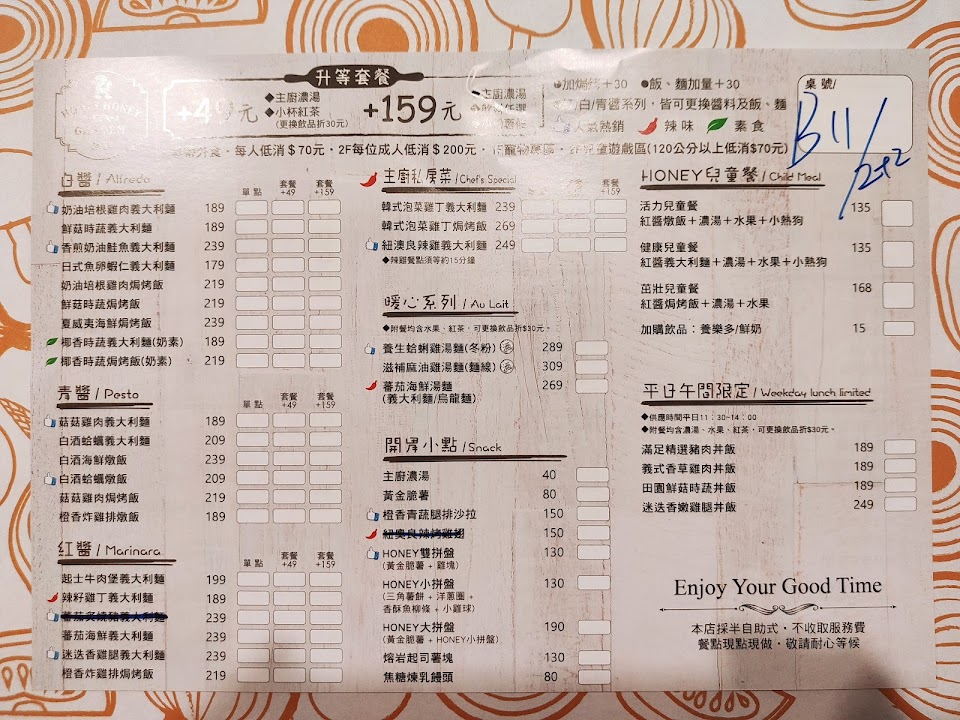 升等套餐
元
◆主廚濃湯
◆小杯紅茶
(更換飲品折30元)
+159元
主廚濃湯
+30 ●飯、麵加量+30
白/青醬系列，皆可更換醬料及飯、麵
人氣熱銷 辣味 素食
桌號/
B11/2+2
每人低消$70元・2F每位成人低消$200元・
兒童遊戲區(120公分以上低消$70元)
白醬/Alfredo
單點 套餐+49 套餐+159
奶油培根雞肉義大利麵 189
鮮菇時蔬義大利麵 189
香煎奶油鮭魚義大利麵 239
日式魚卵蝦仁義大利麵 179
奶油培根雞肉焗烤飯 219
鮮菇時蔬焗烤飯 219
夏威夷海鮮焗烤飯 239
椰香時蔬義大利麵(奶素) 189
椰香時蔬焗烤飯(奶素) 219
青醬/Pesto
單點 套餐+49 套餐+159
菇菇雞肉義大利麵 189
白酒蛤蠣義大利麵 209
白酒海鮮燉飯 239
白酒蛤蠣燉飯 209
菇菇雞肉焗烤飯 219
橙香炸雞排燉飯 189
紅醬/Marinara
單點 套餐+49 套餐+159
起士牛肉堡義大利麵 199
辣籽雞丁義大利麵 189
蕃茄炙燒豬義大利麵 239
蕃茄海鮮義大利麵 239
迷迭香雞腿義大利麵 239
橙香炸雞排焗烤飯 219
主廚私房菜/Chef's Special
+159
韓式泡菜雞丁義大利麵 239
韓式泡菜雞丁焗烤飯 269
紐澳良辣雞義大利麵 249
◆辣雞餐點須等約15分鐘
暖心系列/Au Lait
◆附餐均含水果、紅茶，可更換飲品折$30元。
養生蛤蜊雞湯麵(冬粉) 289
滋補麻油雞湯麵(麵線) 309
蕃茄海鮮湯麵 269
(義大利麵/烏龍麵)
開胃小點/Snack
主廚濃湯 40
黃金脆薯 80
橙香青蔬腿排沙拉 150
紐奧良辣烤雞翅 150
HONEY雙拼盤 130
(黃金脆薯+雞塊)
HONEY小拼盤 130
(三角薯餅+洋蔥圈+
香酥魚柳條+小雞球)
HONEY大拼盤 190
(黃金脆薯+HONEY小拼盤)
熔岩起司薯塊 130
焦糖煉乳饅頭 80
HONEY兒童餐/Child Meal
活力兒童餐 135
紅醬燉飯+濃湯+水果+小熱狗
健康兒童餐 135
紅醬義大利麵+濃湯+水果+小熱狗
茁壯兒童餐 168
紅醬焗烤飯+濃湯+水果
加購飲品：養樂多/鮮奶 15
平日午間限定/Weekday lunch limited
◆供應時間平日11：30-14：00
◆附餐均含濃湯、水果、紅茶，可更換飲品折$30元。
滿足精選豬肉丼飯 189
義式香草雞肉丼飯 189
田園鮮菇時蔬丼飯 189
迷迭香嫩雞腿丼飯 249
Enjoy Your Good Time
本店採半自助式・不收取服務費
餐點現點現做・敬請耐心等候